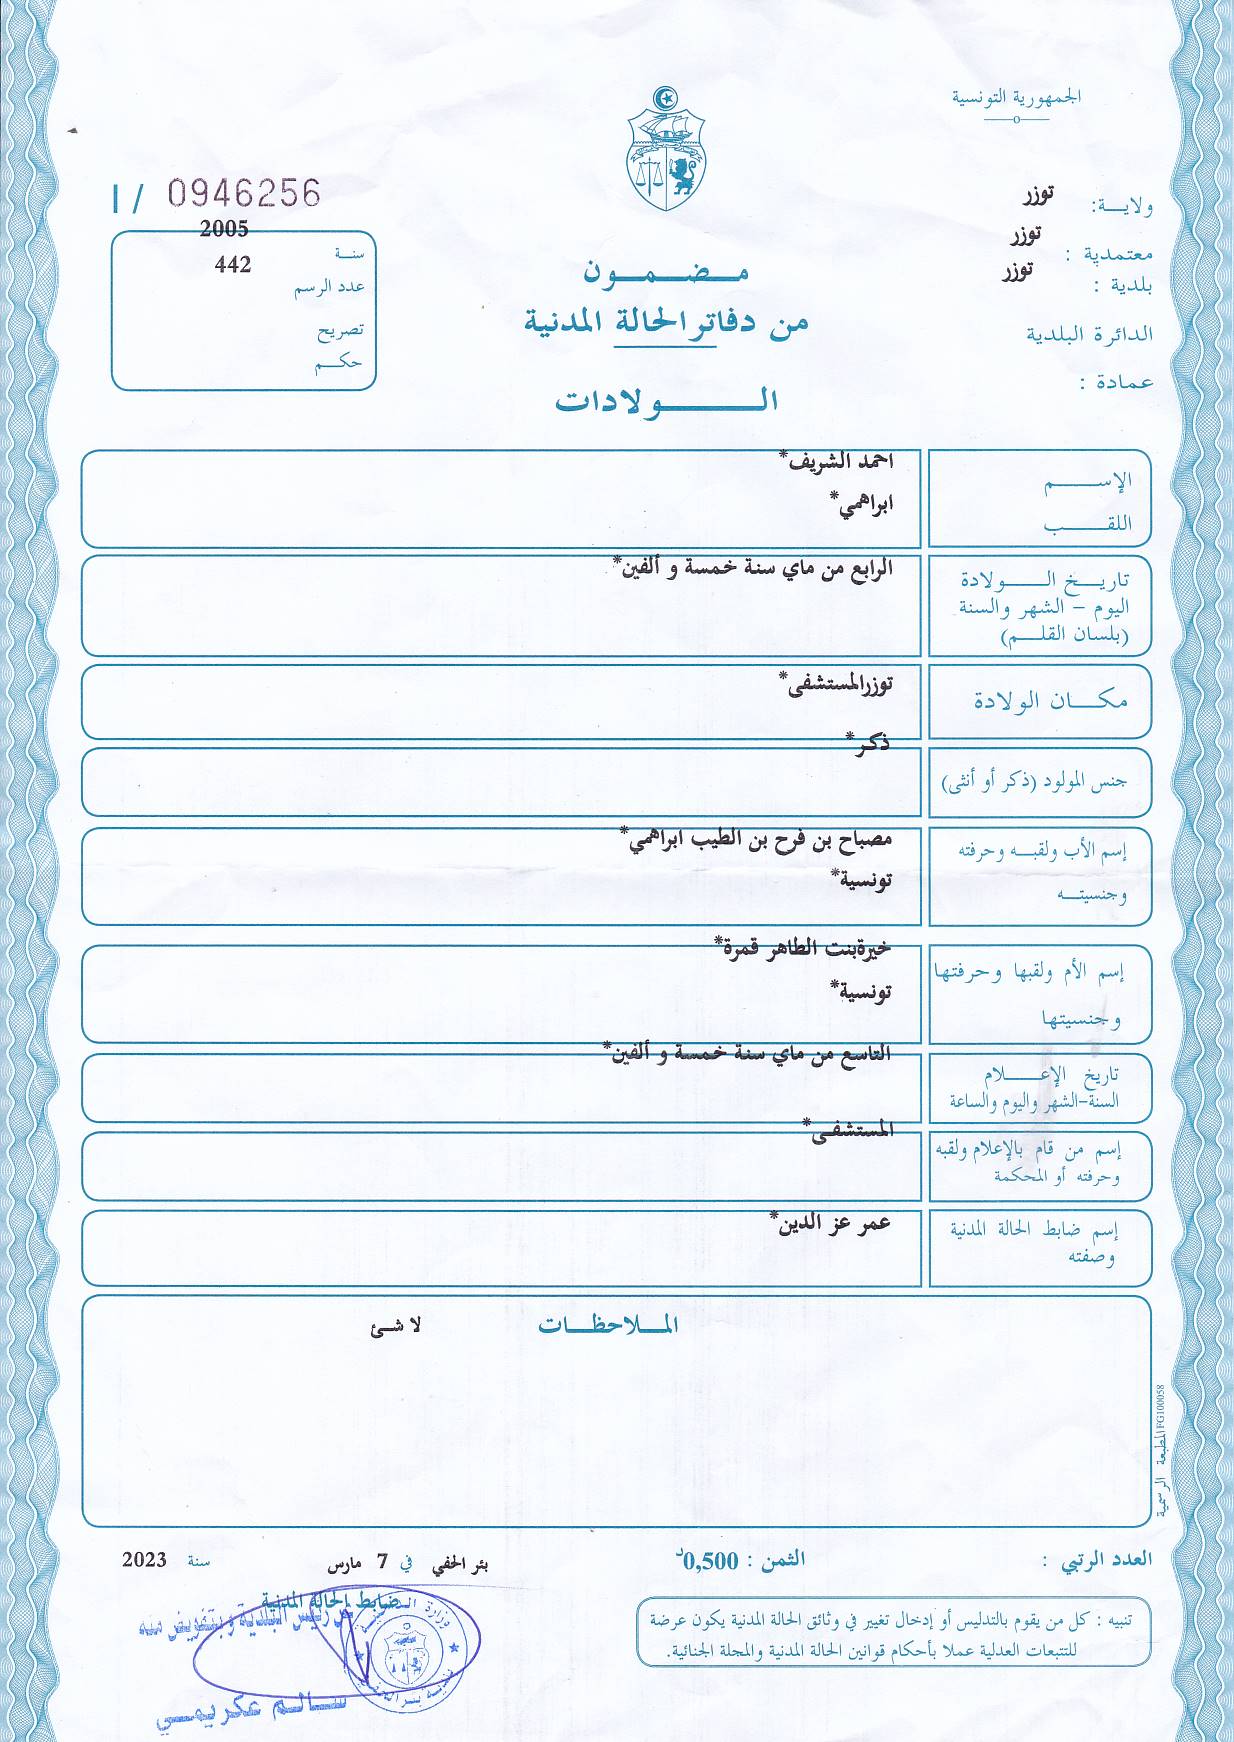 الجمهورية التونسية
I / 0946256
ولايـــة: توزر
معتمدية : توزر
بلدية : توزر
الدائرة البلدية
عمادة :
سنــة 2005
عدد الرسم 442
تصريح
حكــم
مــضــمــون
من دفاتر الحالة المدنية
الــــولادات
الإســـــم احمد الشريف*
اللقـــــب ابراهمي*
تاريــخ الـــولادة
اليوم – الشهر والسنة
(بلسان القلــم)
الرابع من ماي سنة خمسة و ألفين*
مكـــان الولادة توزرالمستشفى*
جنس المولود (ذكر أو أنثى) ذكر*
إسم الأب ولقبــه وحرفته
وجنسيتــه
مصباح بن فرح بن الطيب ابراهمي*
تونسية*
إسم الأم ولقبها وحرفتها
وجنسيتها
خيرةبنت الطاهر قمرة*
تونسية*
تاريخ الإعـــلام
السنة-الشهر واليوم والساعة
التاسع من ماي سنة خمسة و ألفين*
إسم من قام بالإعلام ولقبه
وحرفته أو المحكمة
المستشفى*
إسم ضابط الحالة المدنية
وصفته
عمر عز الدين*
المــلاحظــات لا شئ
المطبعة الرسمية FG100058
العدد الرتبي :
الثمن : 0,500د
بئر الحفي في 7 مارس سنة 2023
ضابط الحالة المدنية
عن رئيس البلدية وبتفويض منه
سالم عكريمي
تنبيه : كل من يقوم بالتدليس أو إدخال تغيير في وثائق الحالة المدنية يكون عرضة
للتتبعات العدلية عملا بأحكام قوانين الحالة المدنية والمجلة الجنائية.